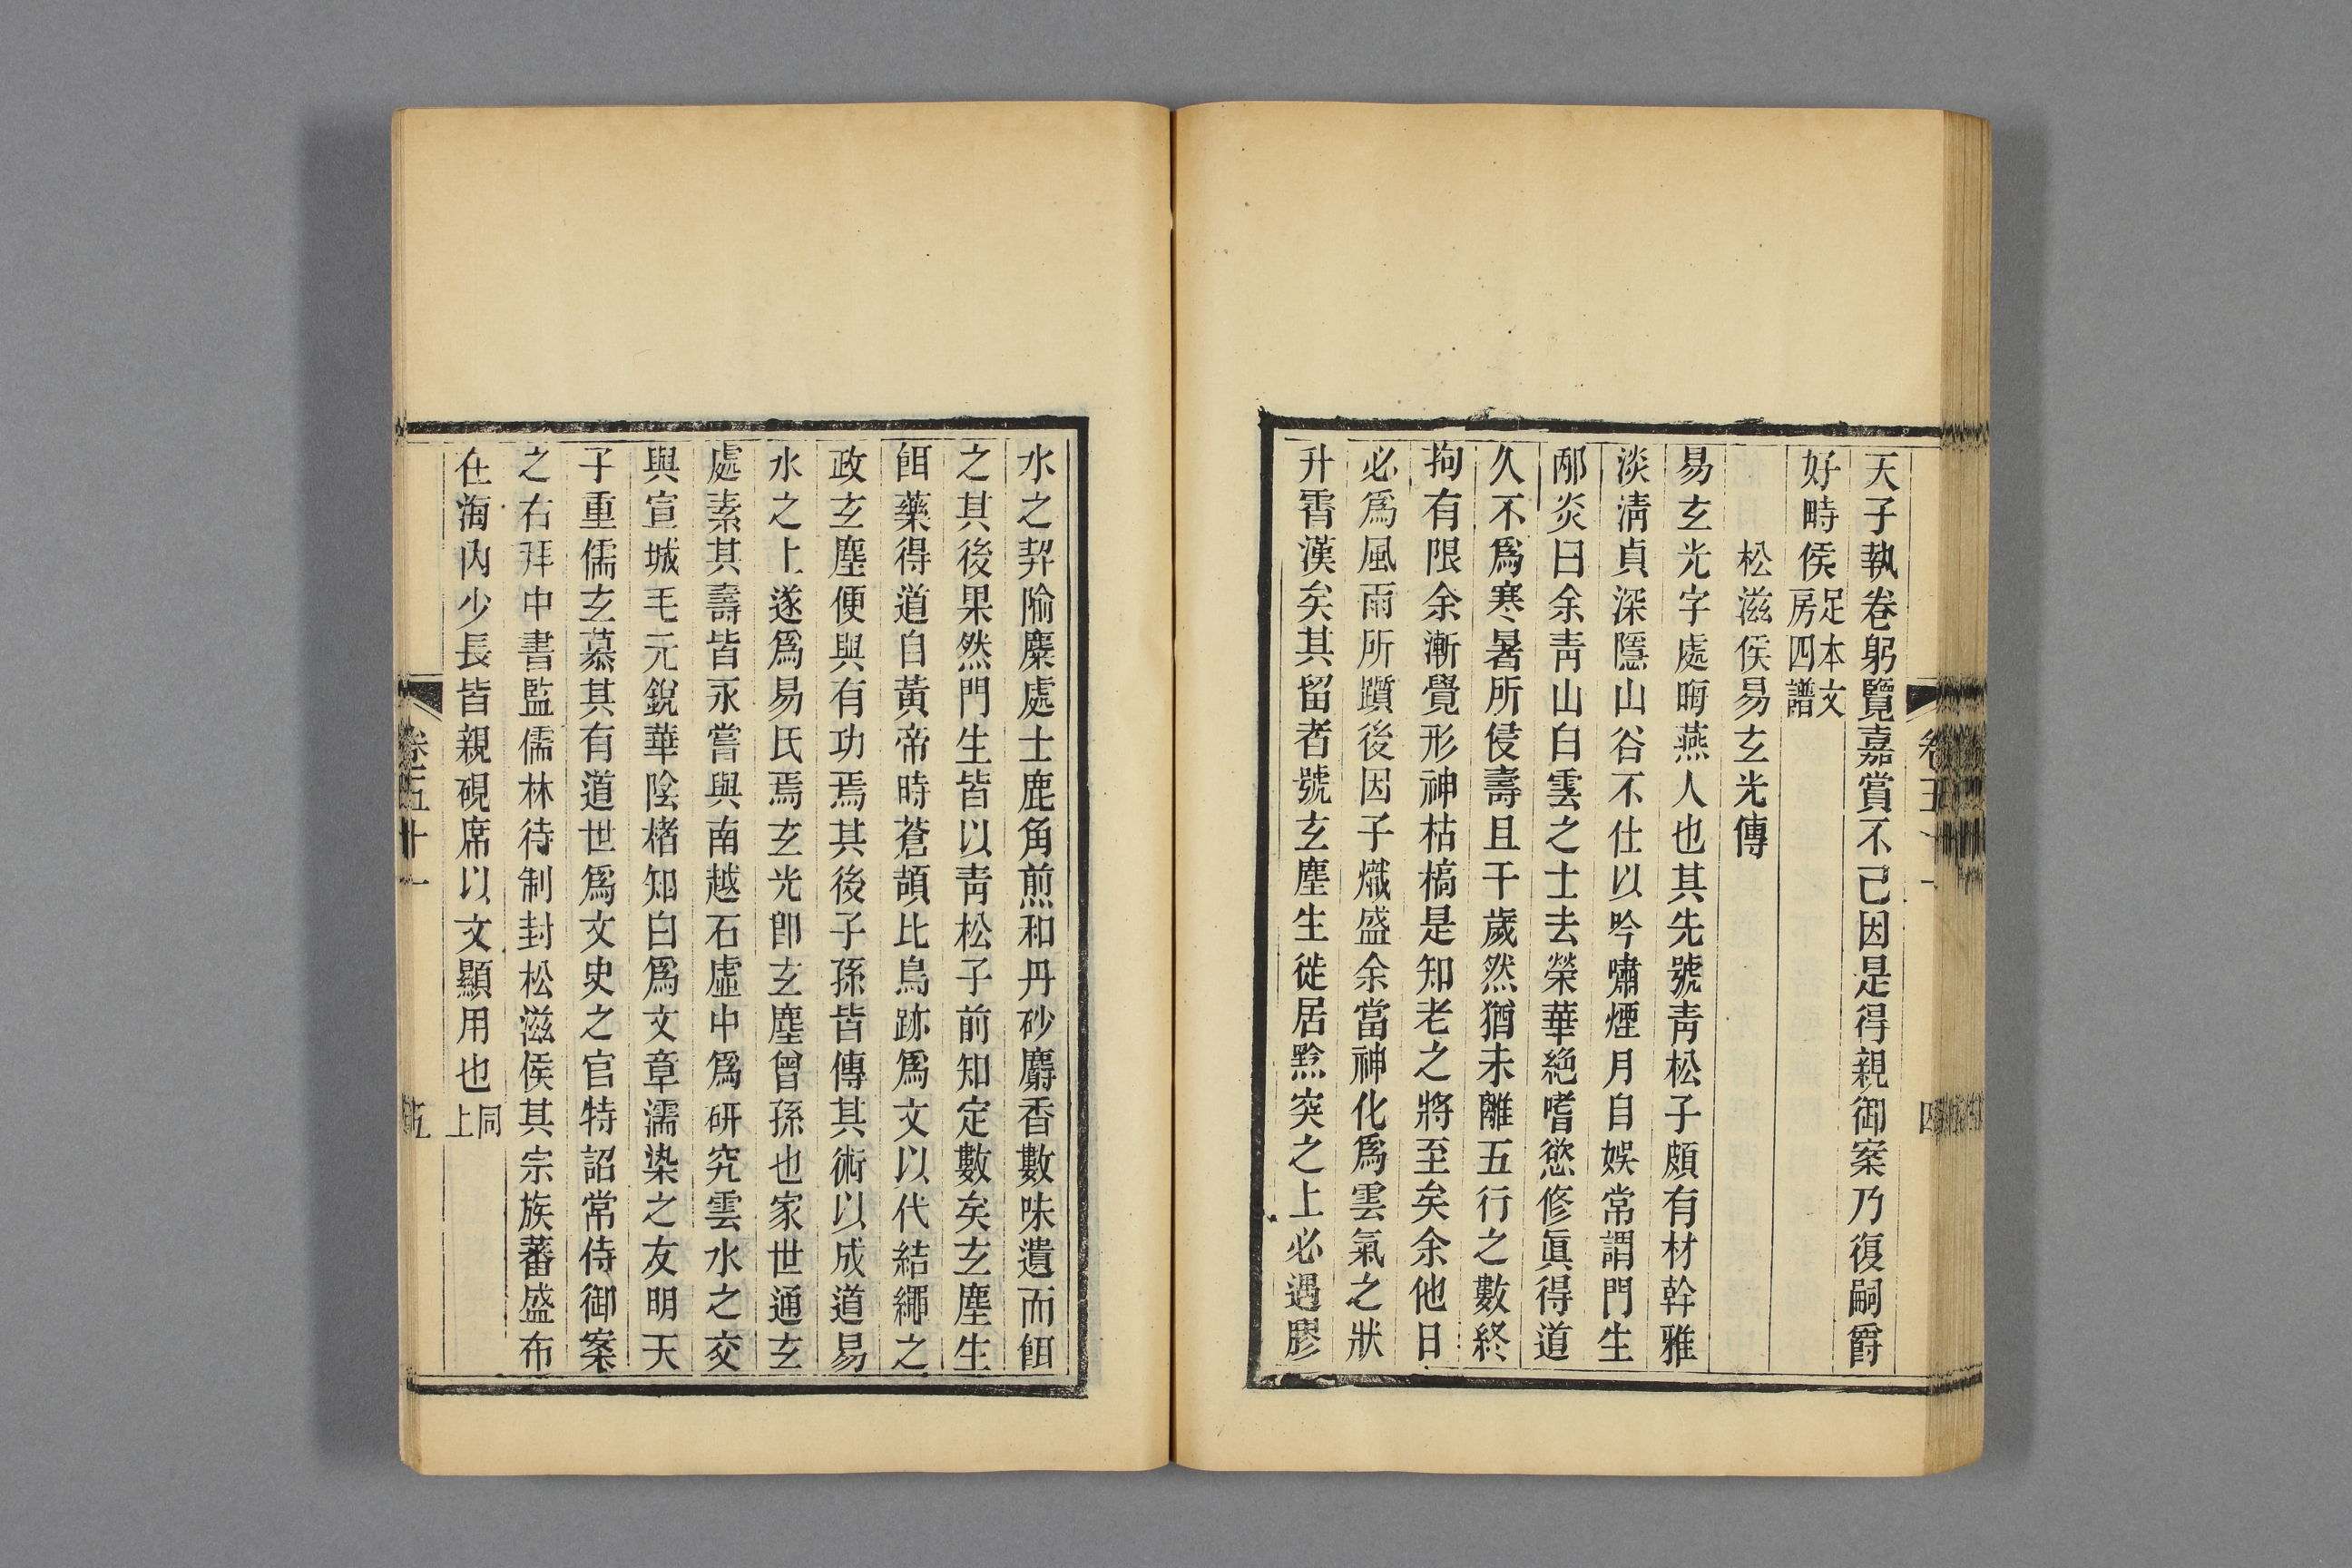 天子執卷躬覽嘉賞不己因是得親御案乃復嗣爵
好畤侯足本文房四譜
松滋侯易玄光傳
易玄光字處晦燕人也其先號靑松子頗有材幹雅
淡淸貞深隱山谷不仕以吟嘯煙月自娛常謂門生
邴炎曰余靑山白雲之士去榮華絶嗜慾修眞得道
久不爲寒暑所侵壽且千歲然猶未離五行之數終
拘有限余漸覺形神枯槁是知老之將至矣余他日
必爲風雨所躓後因子熾盛余當神化爲雲氣之狀
升霄漢矣其留者號玄塵生徙居黔突之上必遇膠
卷五十一
四
水之契隃麋處士鹿角煎和丹砂麝香數味遺而餌
之其後果然門生皆以靑松子前知定數矣玄塵生
餌藥得道自黃帝時蒼頡比鳥跡爲文以代結繩之
政玄塵便與有功焉其後子孫皆傳其術以成道易
水之上遂爲易氏焉玄光卽玄塵曾孫也家世通玄
處素其壽皆永嘗與南越石虛中爲硏究雲水之交
與宣城毛元銳華陰楮知白爲文章濡染之友明天
子重儒玄慕其有道世爲文史之官特詔常侍御案
之右拜中書監儒林待制封松滋侯其宗族蕃盛布
在海內少長皆親硯席以文顯用也同上
卷五十一
五